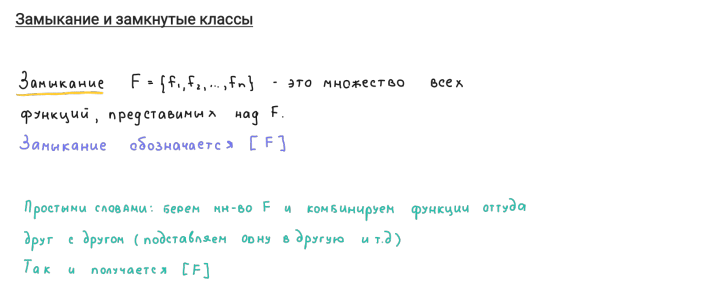 Замыкание и замкнутые классы
Замыкание F = {f₁, f₂, ..., fₙ} - это множество всех
функций, представимых над F.
Замыкание обозначается [F]
Простыми словами: берем мн-во F и комбинируем функции оттуда
друг с другом (подставляем одну в другую и т.д)
Так и получается [F]